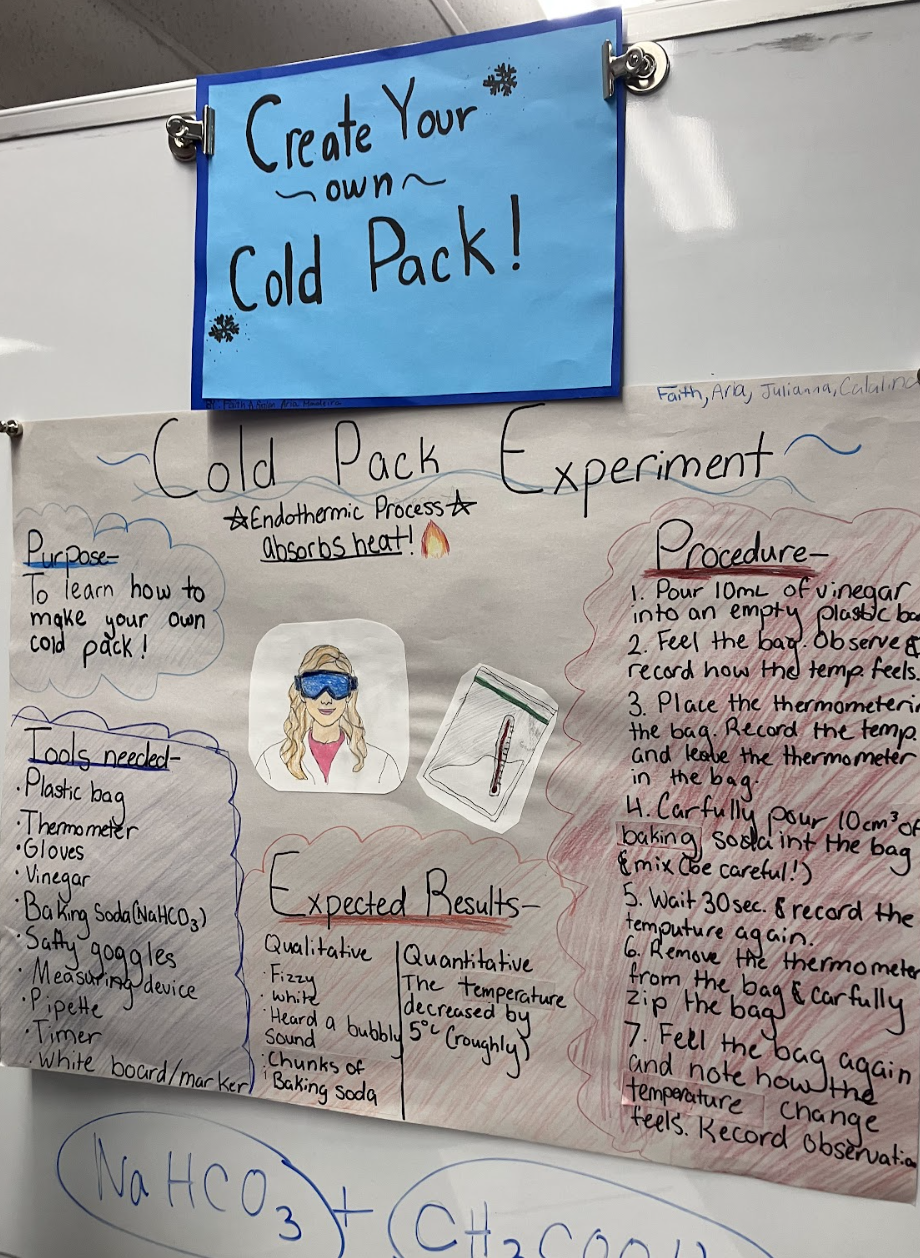 Create Your
~own~
Cold Pack!
Faith, Aria, Julianna, Catalina
Cold Pack Experiment
☆Endothermic Process☆
absorbs heat!
Purpose-
To learn how to
make your own
cold pack!
Tools needed-
·Plastic bag
·Thermometer
·Gloves
·Vinegar
·Baking Soda(NaHCO₃)
·Safty goggles
·Measuring device
·Pipette
·Timer
·White board/marker
Expected Results-
Qualitative
·Fizzy
·white
·Heard a bubbly
Sound
·Chunks of
Baking Soda
Quantitative
The temperature
decreased by
5°C (roughly)
Procedure-
1. Pour 10mL of vinegar
into an empty plastic ba
2. Feel the bag. Observe &
record how the temp. feels.
3. Place the thermometer in
the bag. Record the temp.
and leave the thermometer
in the bag.
4. Carfully pour 10cm³ of
baking soda int the bag
& mix (be careful!)
5. Wait 30sec. & record the
temputure again.
6. Remove the thermometer
from the bag & carfully
zip the bag
7. Fell the bag again
and note how the
temperature change
feels. Record Observatio
NaHCO₃ + CH₃COO